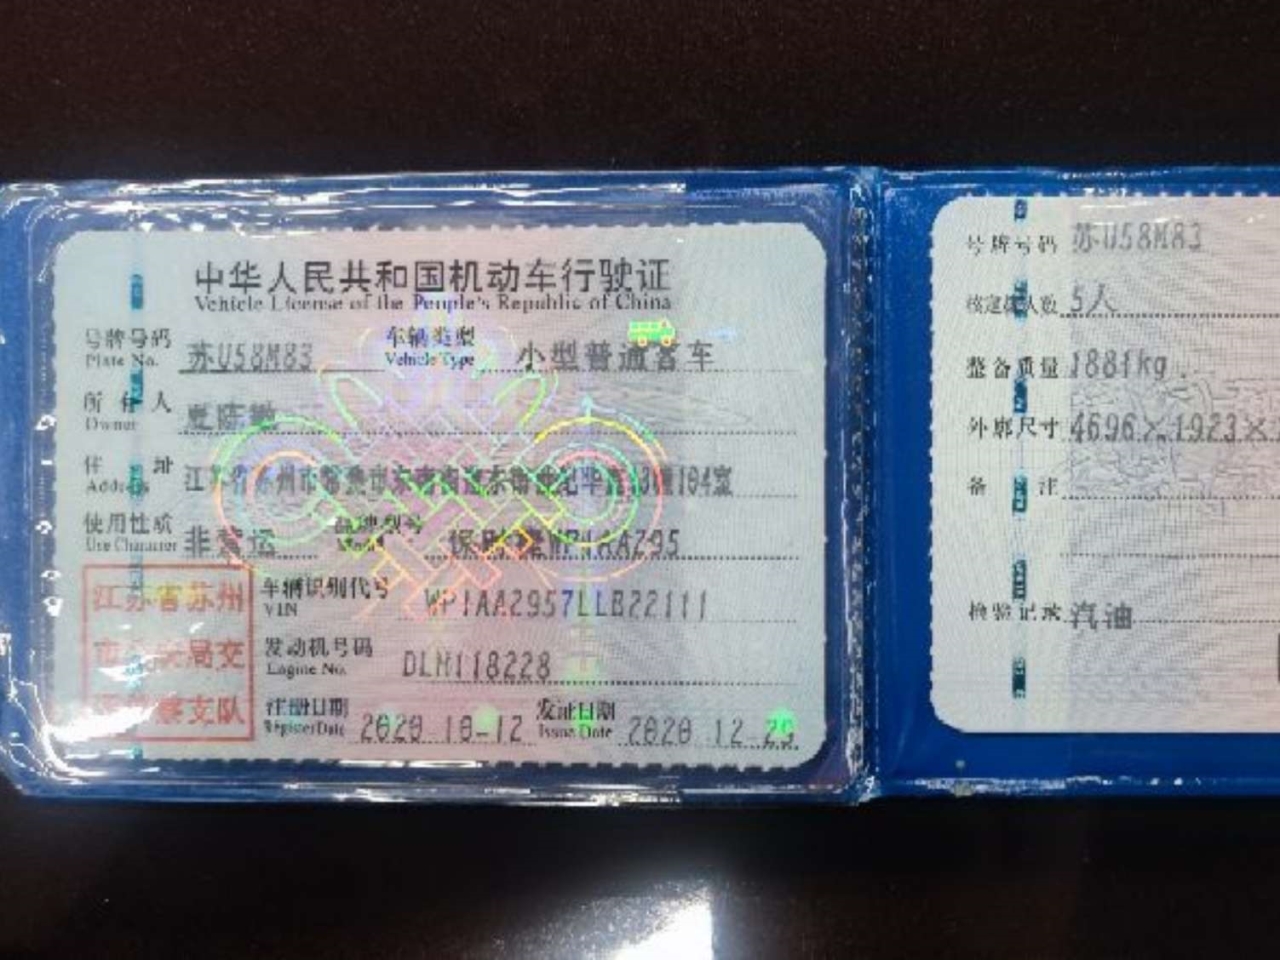 中华人民共和国机动车行驶证
Vehicle License of the People's Republic of China
号牌号码 Plate No. 苏U58M83 车辆类型 Vehicle Type 小型普通客车
所有人 Owner
住址 Address 江苏省苏州市 104室
使用性质 Use Character 非营运 品牌型号 Model 保时捷WP1AA295
江苏省苏州
市公安局交
通警察支队
车辆识别代号 VIN WP1AA2957LLB22111
发动机号码 Engine No. DLM118228
注册日期 Register Date 2020-10-12 发证日期 Issue Date 2020-12-29
号牌号码 苏U58M83
核定载人数 5人
整备质量 1881kg
外廓尺寸 4696×1923×
备注
检验记录 汽油